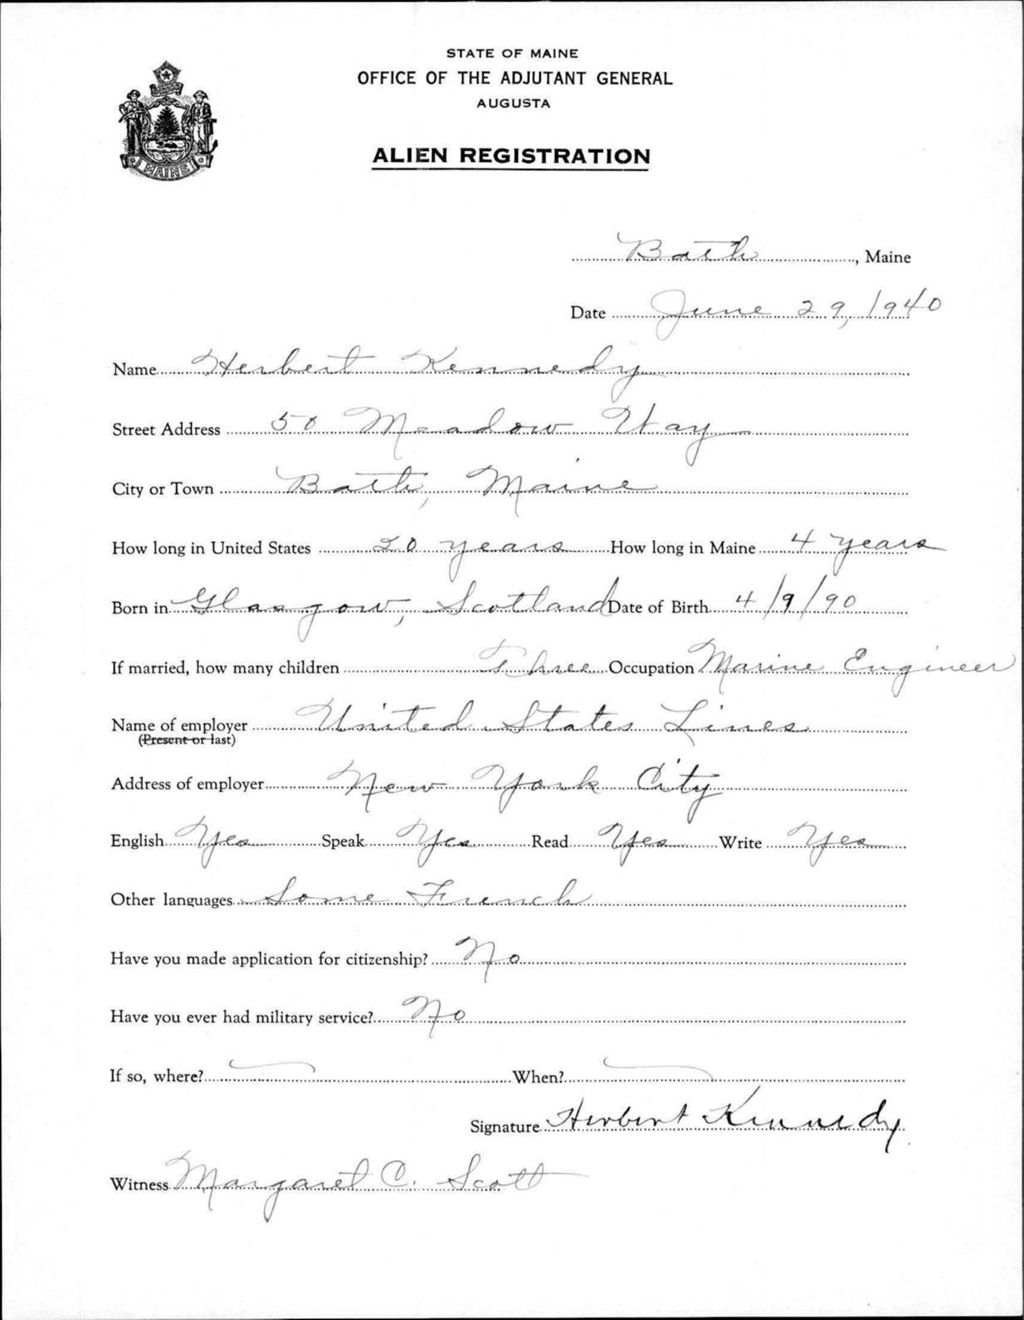 STATE OF MAINE
OFFICE OF THE ADJUTANT GENERAL
AUGUSTA
ALIEN REGISTRATION
MAINE
Bath, Maine
Date June 29, 1940
Name Herbert Kennedy
Street Address 50 Meadow Way
City or Town Bath, Maine
How long in United States 20 years How long in Maine 4 years
Born in Glasgow, Scotland Date of Birth 4/9/90
If married, how many children Three Occupation Marine Engineer
Name of employer United States Lines
(Present or last)
Address of employer New York City
English Yes Speak Yes Read Yes Write Yes
Other languages Some French
Have you made application for citizenship? No
Have you ever had military service? No
If so, where? When?
Signature Herbert Kennedy
Witness Margaret C. Scott